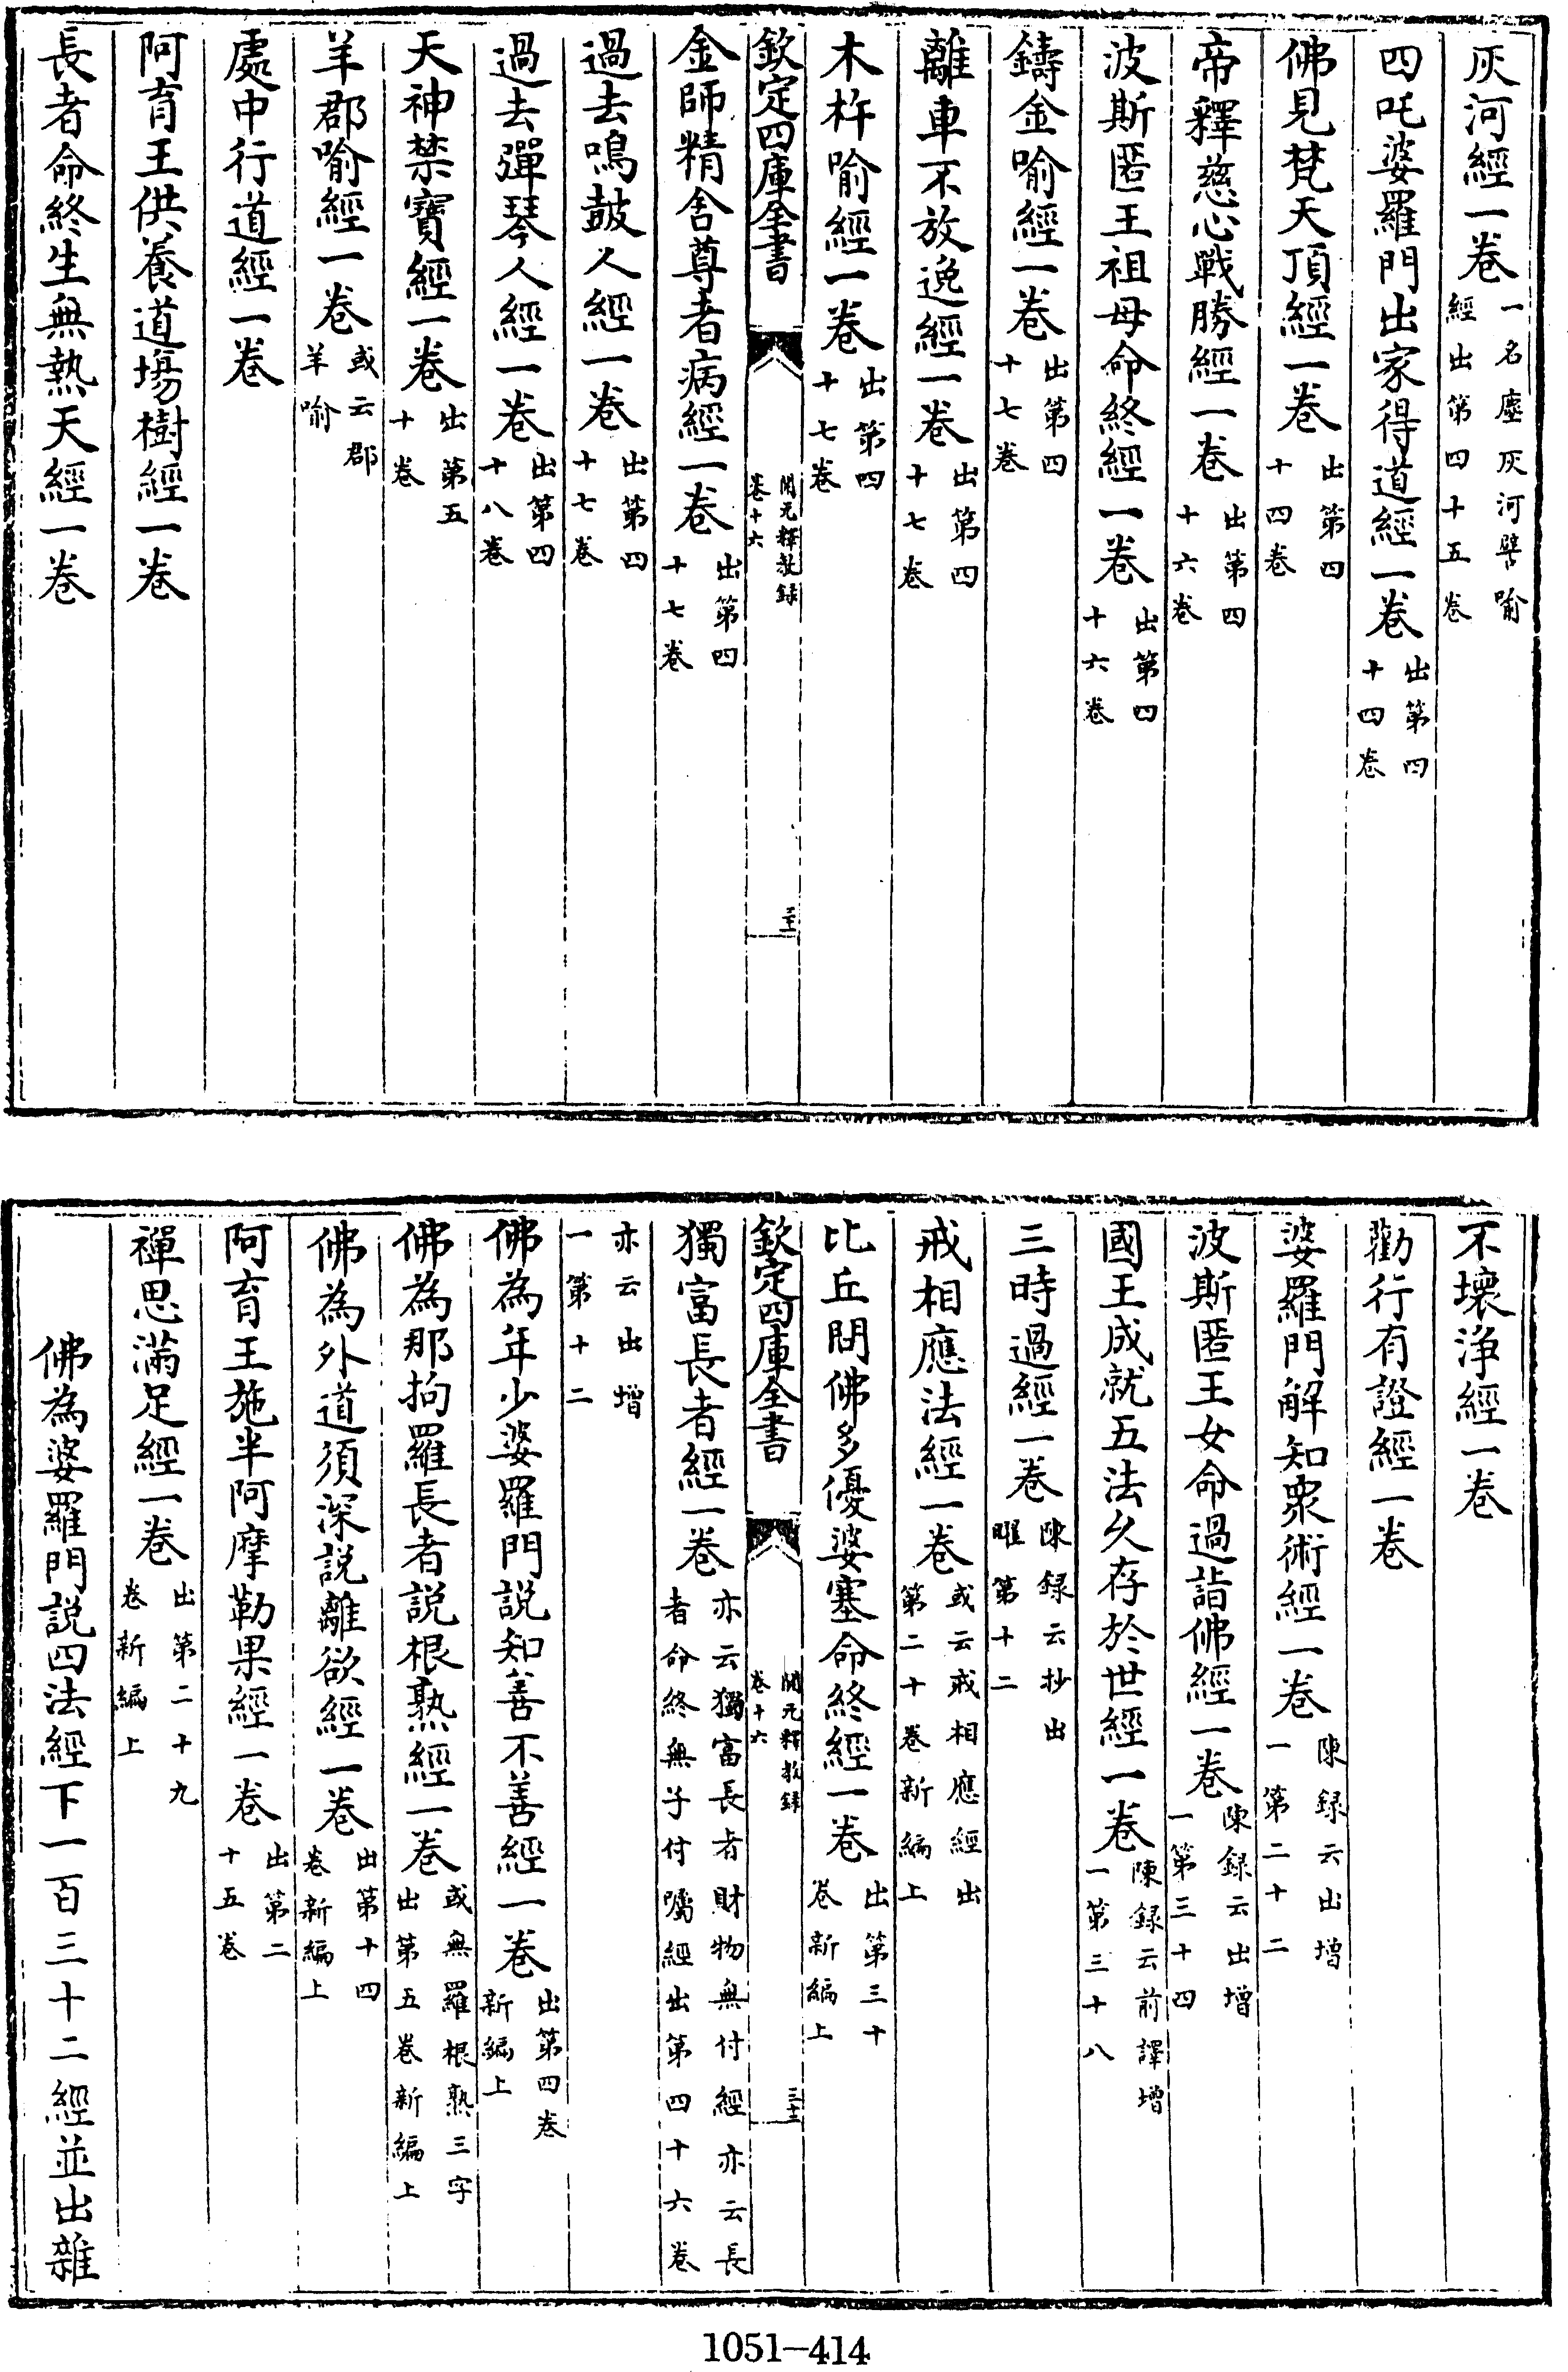 灰河經一卷一名塵灰河譬喻經出第四十五卷
四吒婆羅門出家得道經一卷出第四十四卷
佛見梵天頂經一卷出第四十四卷
帝釋慈心戰勝經一卷出第四十六卷
波斯匿王祖母命終經一卷出第四十六卷
鑄金喻經一卷出第四十七卷
離車不放逸經一卷出第四十七卷
木杵喻經一卷出第四十七卷
欽定四庫全書 開元釋教録卷十六
金師精舎尊者病經一卷出第四十七卷
過去鳴鼓人經一卷出第四十七卷
過去彈琴人經一卷出第四十八卷
天神禁寶經一卷出第五十卷
羊郡喻經一卷或云郡羊喻
處中行道經一卷
阿育王供養道場樹經一卷
長者命終生無熱天經一卷
不壞淨經一卷
勸行有證經一卷
婆羅門解知衆術經一卷陳録云出增一第二十二
波斯匿王女命過詣佛經一卷陳録云出增一第三十四
國王成就五法久存於世經一卷陳録云前譯增一第三十八
三時過經一卷陳録云抄出曜第十二
戒相應法經一卷或云戒相應經出第二十卷新編上
比丘問佛多優婆塞命終經一卷出第三十卷新編上
欽定四庫全書 開元釋教録卷十六 三十二
獨富長者經一卷亦云獨富長者財物無付經亦云長者命終無子付囑經出第四十六卷
亦云出增一第十二
佛為年少婆羅門説知善不善經一卷出第四卷新編上
佛為那拘羅長者説根熟經一卷或無羅根熟三字出第五卷新編上
佛為外道須深説離欲經一卷出第十四卷新編上
阿育王施半阿摩勒果經一卷出第二十五卷
禪思滿足經一卷出第二十九卷新編上
佛為婆羅門説四法經下一百三十二經並出雜
1051-414